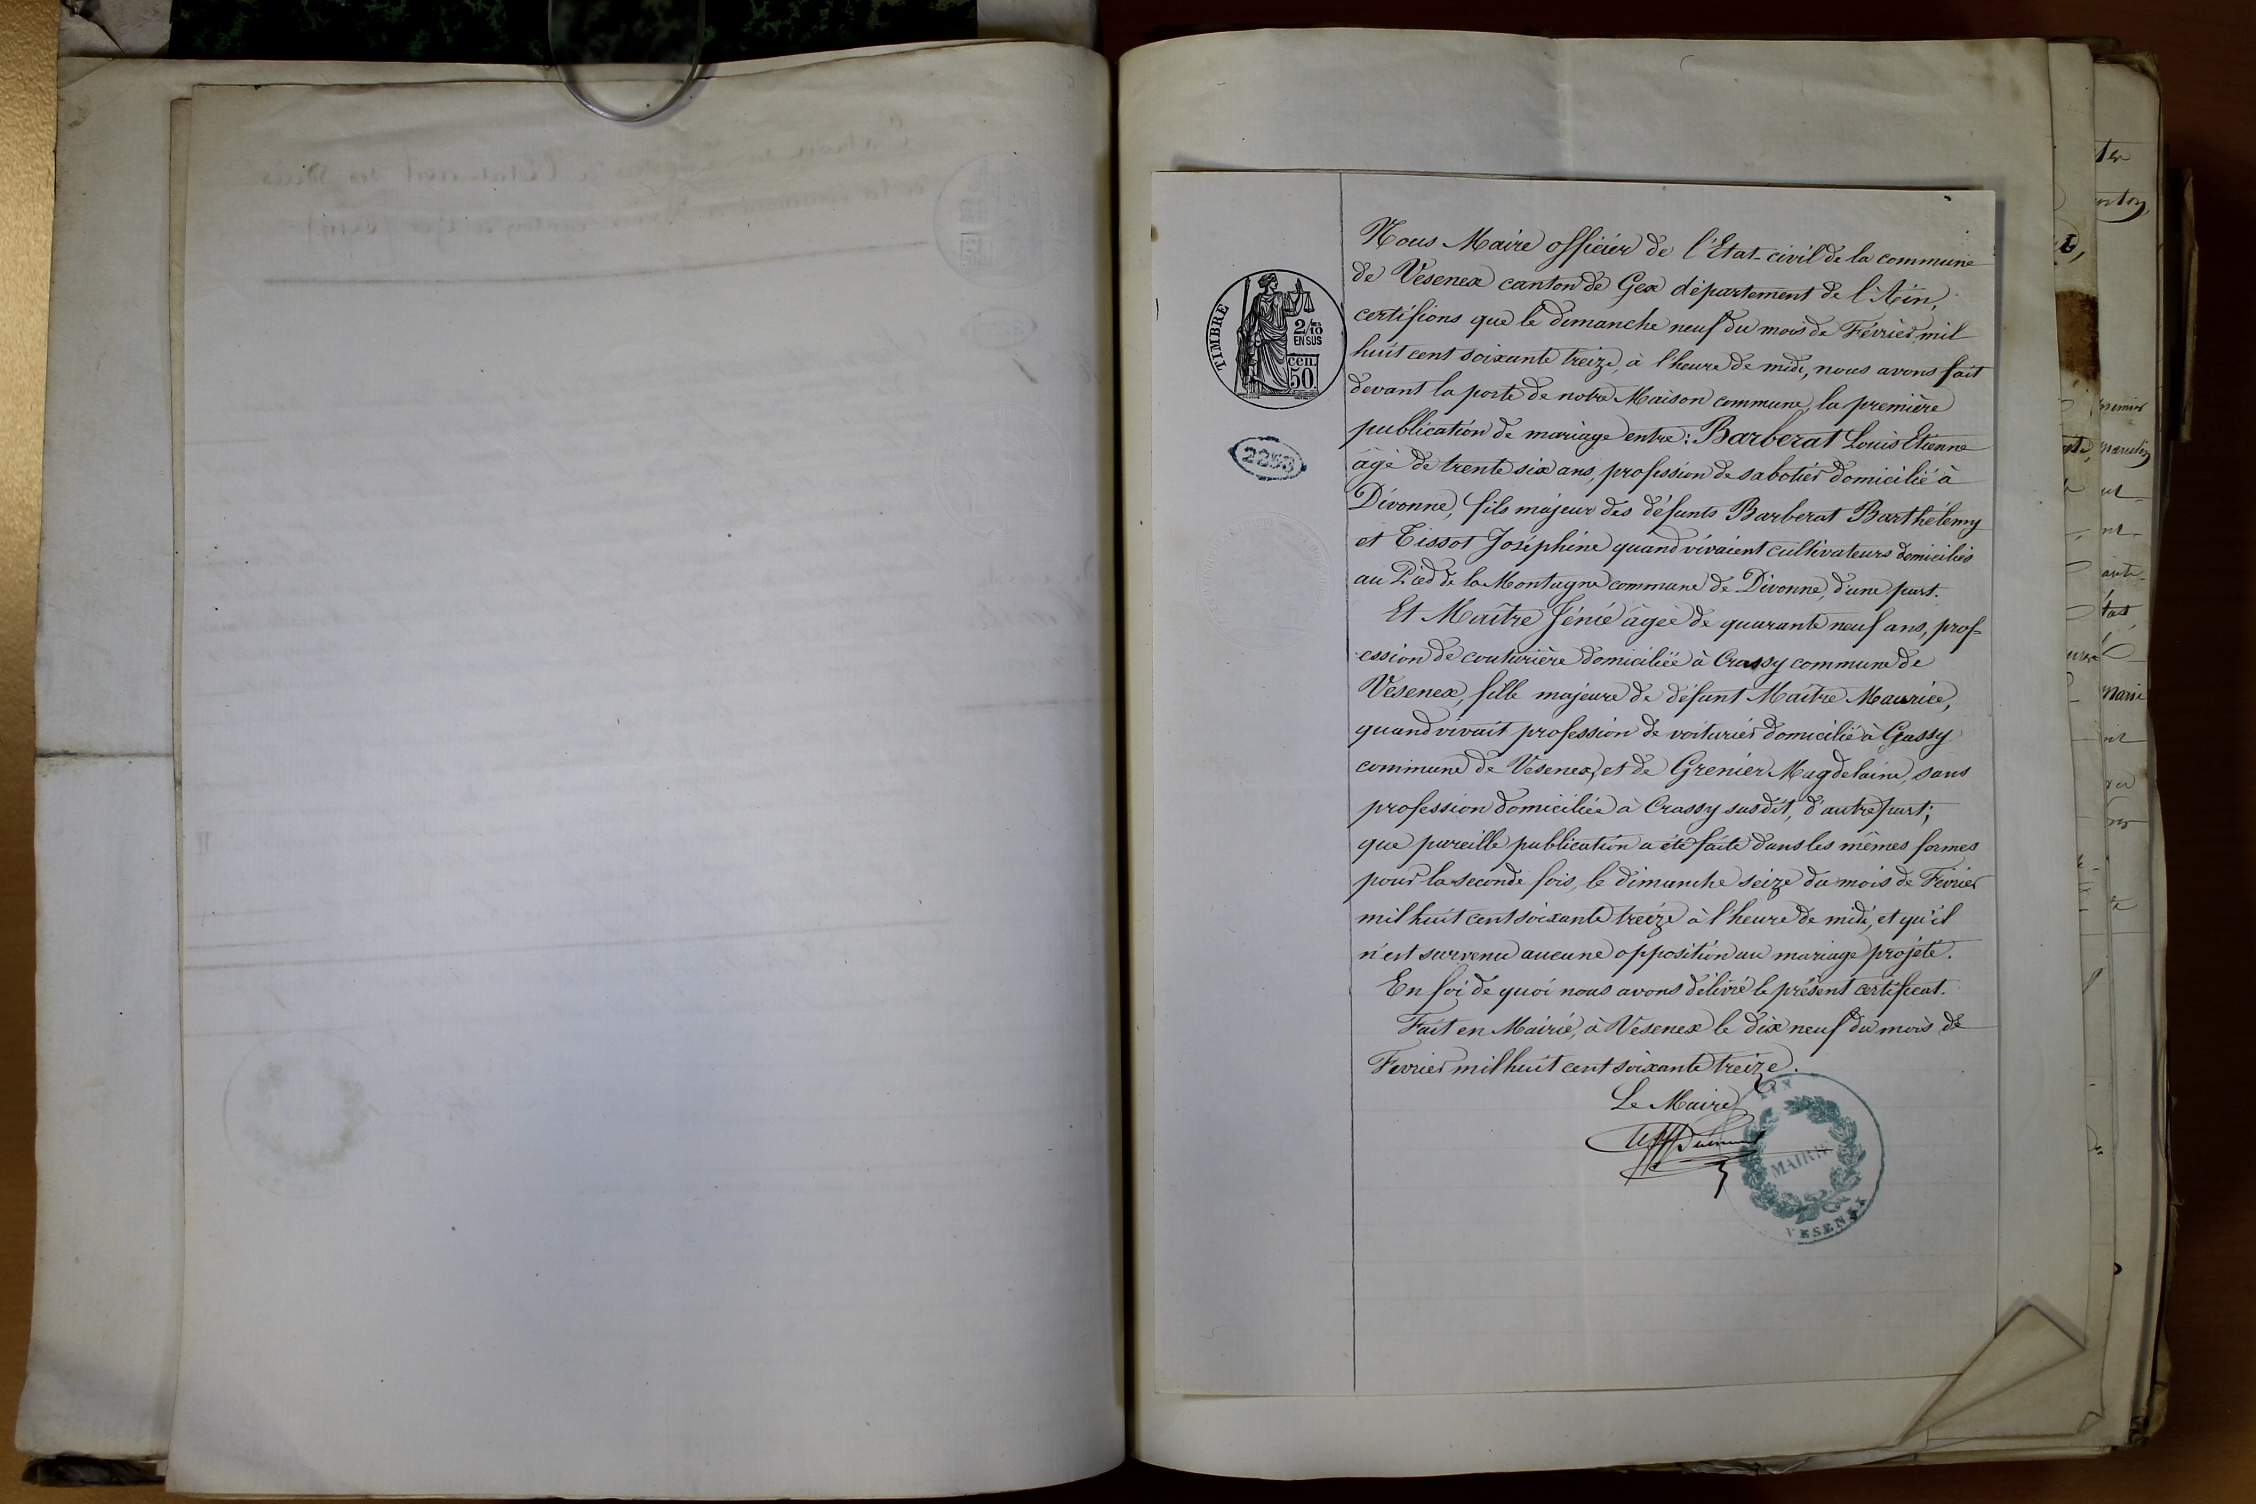 Nous Maire officier de l'Etat-civil de la commune
de Vesenex canton de Gex département de l'Ain,
certifions que le dimanche neuf du mois de Février mil
huit cent soixante treize, à l'heure de midi, nous avons fait
devant la porte de notre Maison commune, la première
publication de mariage entre: Barberat Louis Etienne
âgé de trente six ans, profession de sabotier domicilié à
Divonne, fils majeur des défunts Barberat Barthélemy
et Tissot Joséphine quand vivaient cultivateurs domiciliés
au Pied de la Montagne commune de Divonne, d'une part.
Et Maître Jénie âgée de quarante neuf ans, prof-
ession de couturière domiciliée à Crassy commune de
Vesenex, fille majeure de défunt Maître Maurice,
quand vivait profession de voiturier domicilié à Crassy
commune de Vesenex, et de Grenier Magdelaine, sans
profession domiciliée à Crassy susdit, d'autre part;
que pareille publication a été faite dans les mêmes formes
pour la seconde fois, le dimanche seize du mois de Février
mil huit cent soixante treize à l'heure de midi, et qu'il
n'est survenu aucune opposition au mariage projeté.
En foi de quoi nous avons délivré le présent certificat.
Fait en Mairie, à Vesenex le dix neuf du mois de
Fevrier mil huit cent soixante treize.
Le Maire
TIMBRE
2/10
EN SUS
cen.
50
2253
AIN
MAIRIE
VESENEX